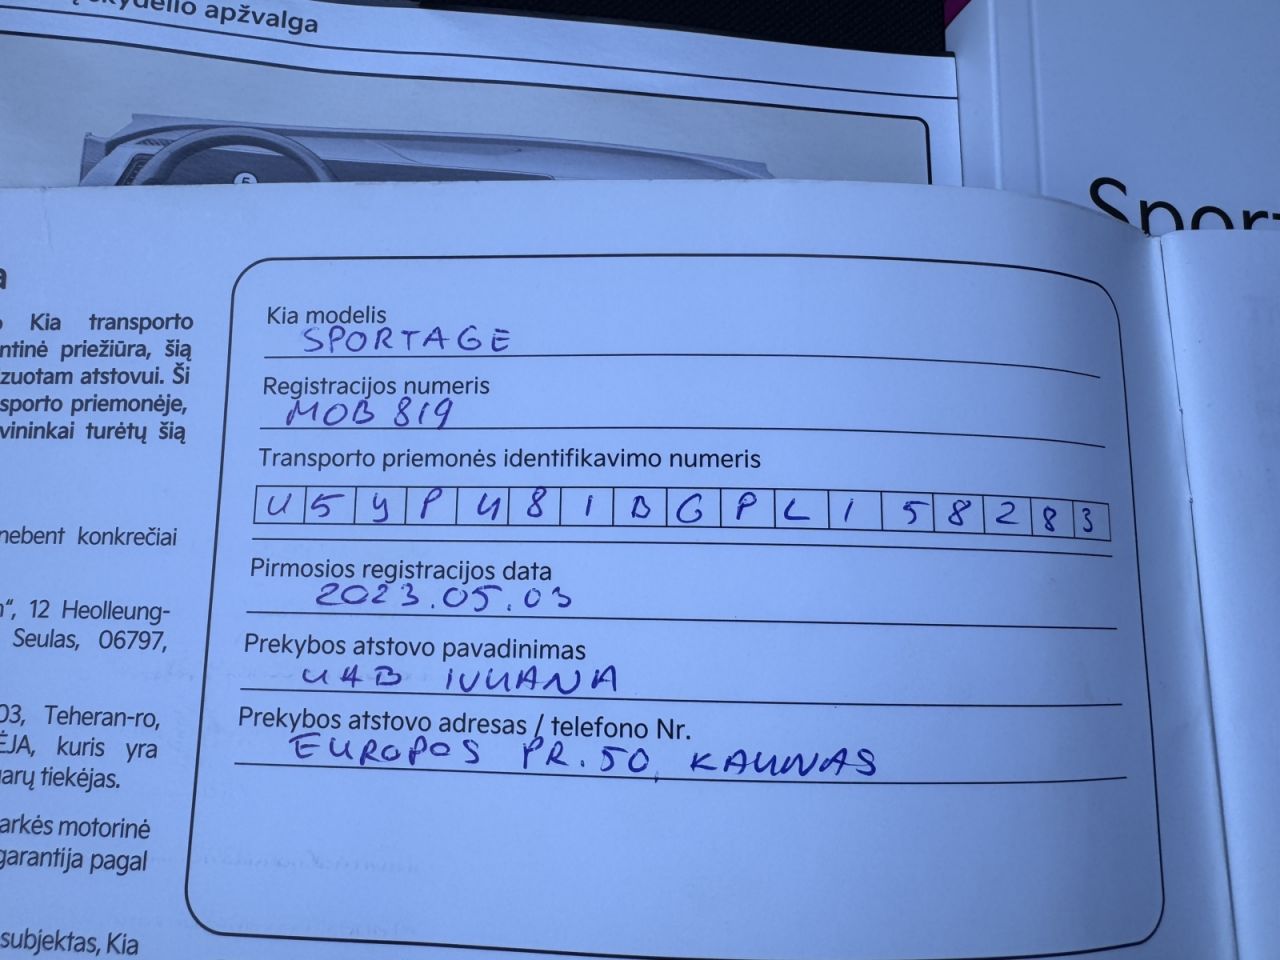 skydelio apžvalga
5
Sport
a
Kia transporto
ntinė priežiūra, šią
zuotam atstovui. Ši
sporto priemonėje,
vininkai turėtų šią
nebent konkrečiai
n“, 12 Heolleung-
Seulas, 06797,
03, Teheran-ro,
ĖJA, kuris yra
arų tiekėjas.
arkės motorinė
garantija pagal
subjektas, Kia
Kia modelis
SPORTAGE
Registracijos numeris
MOB 819
Transporto priemonės identifikavimo numeris
U5YPU81BGPL158283
Pirmosios registracijos data
2023.05.03
Prekybos atstovo pavadinimas
UAB
Prekybos atstovo adresas / telefono Nr.
EUROPOS PR. 50, KAUNAS